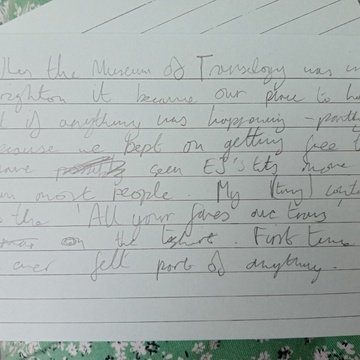 the Museum of Transology was in
Brighton it became our place to
if anything was happening - partly
because we kept on getting free
seen EJ's tits more
most people. My [tiny]
the 'All your faves are trans'
on the tshirt. First time
ever felt part of anything.